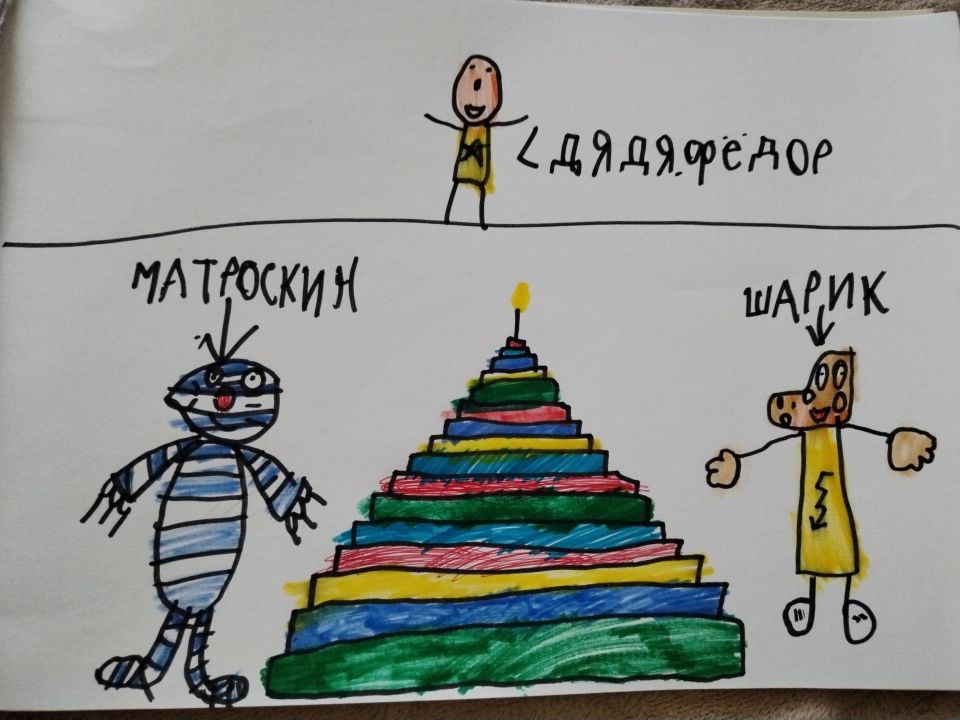 < ДЯДЯ.ФЁДОР
МАТРОСКИН
ШАРИК